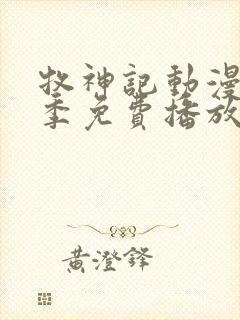 牧神記動漫
季免費播放
黃澄鋒